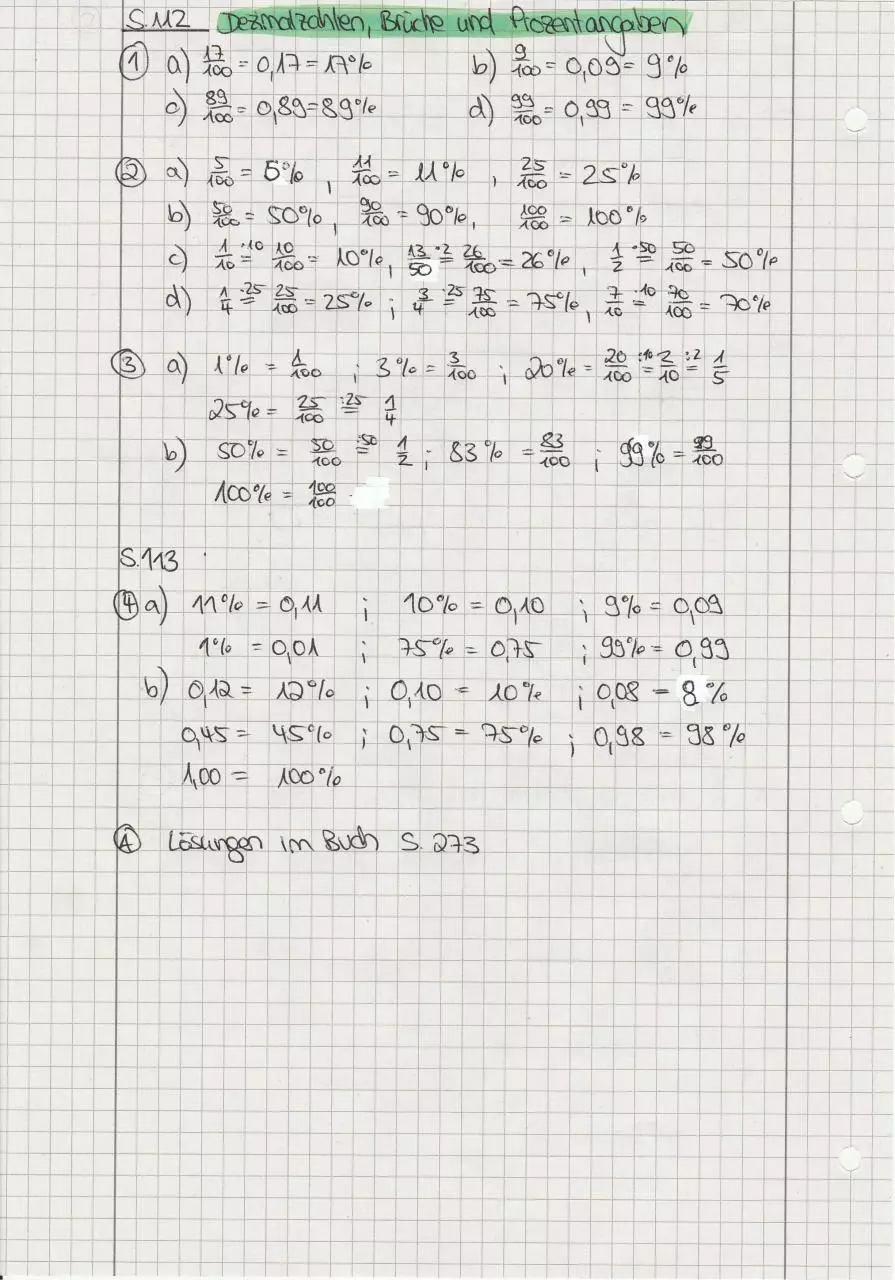 S.112 Dezimalzahlen, Brüche und Prozentangaben
① a) 17/100 = 0,17 = 17% b) 9/100 = 0,09 = 9%
c) 89/100 = 0,89 = 89% d) 99/100 = 0,99 = 99%
② a) 5/100 = 5% , 11/100 = 11% , 25/100 = 25%
b) 50/100 = 50% , 90/100 = 90%, 100/100 = 100%
c) 1/10 ·10= 10/100 = 10%, 13/50 ·2= 26/100 = 26%, 1/2 ·50= 50/100 = 50%
d) 1/4 ·25= 25/100 = 25% ; 3/4 ·25= 75/100 = 75%, 7/10 ·10= 70/100 = 70%
③ a) 1% = 1/100 ; 3% = 3/100 ; 20% = 20/100 :10= 2/10 :2= 1/5
25% = 25/100 :25= 1/4
b) 50% = 50/100 :50= 1/2 ; 83% = 83/100 ; 99% = 99/100
100% = 100/100
S.113
④ a) 11% = 0,11 ; 10% = 0,10 ; 9% = 0,09
1% = 0,01 ; 75% = 0,75 ; 99% = 0,99
b) 0,12 = 12% ; 0,10 = 10% ; 0,08 = 8%
0,45 = 45% ; 0,75 = 75% ; 0,98 = 98%
1,00 = 100%
Ⓐ Lösungen im Buch S. 273